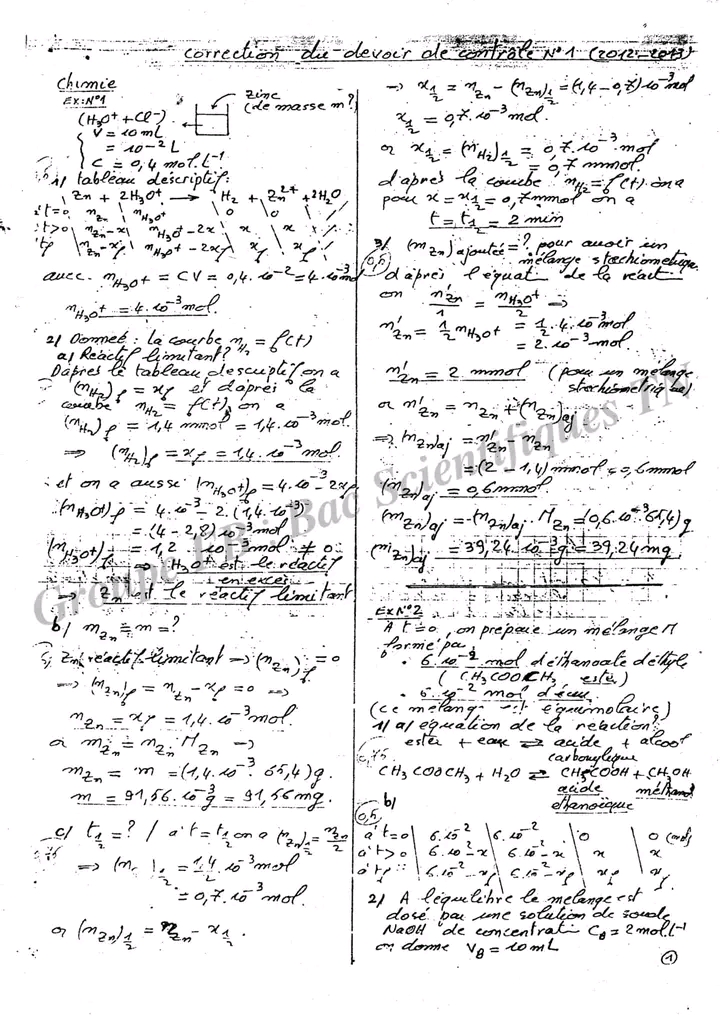 Correction du devoir de contrôle N°1 (2012-2013)
Chimie
EX:N°1
zinc
(de masse m?)
(H3O+ + Cl-)
V = 10 mL
= 10^-2 L
C = 0,4 mol.L^-1
1/ tableau descriptif:
Zn + 2H3O+ → H2 + Zn2+ + 2H2O
à t=0 nZn nH3O+ 0 0
à t>0 nZn-x nH3O+-2x x x
à tf nZn-xf nH3O+-2xf xf xf
avec. nH3O+ = CV = 0,4.10^-2 = 4.10^-3 mol
nH3O+ = 4.10^-3 mol.
2/ Donneé : la courbe nH2 = f(t)
a/ Réactif limitant?
D'après le tableau descriptif on a
(nH2)f = xf et d'après la
courbe nH2 = f(t), on a
(nH2)f = 1,4 mmol = 1,4.10^-3 mol.
⇒ (nH2)f = xf = 1,4.10^-3 mol.
et on a aussi (nH3O+)f = 4.10^-3 - 2xf
(nH3O+)f = 4.10^-3 - 2.(1,4.10^-3)
= (4 - 2,8)10^-3 mol
(nH3O+)f = 1,2 10^-3 mol ≠ 0
⇒ H3O+ est le réactif
en excès
⇒ Zn est le réactif limitant
b/ mZn = m = ?
Zn réactif limitant → (nZn)f = 0
⇒ (nZn)f = nZn - xf = 0 ⇒
nZn = xf = 1,4.10^-3 mol.
or mZn = nZn.MZn ⇒
mZn = m = (1,4.10^-3.65,4)g.
m = 91,56.10^-3 g = 91,56 mg.
c/ t1/2 = ? / à t = t1/2 on a (nZn)1/2 = nZn/2
⇒ (nZn)1/2 = 1,4/2 .10^-3 mol
= 0,7.10^-3 mol.
or (nZn)1/2 = nZn - x1/2
→ x1/2 = nZn - (nZn)1/2 = (1,4 - 0,7)10^-3 mol
x1/2 = 0,7.10^-3 mol.
or x1/2 = (nH2)1/2 = 0,7.10^-3 mol
= 0,7 mmol.
d'après la courbe nH2 = f(t) on a
pour x = x1/2 = 0,7mmol on a
t = t1/2 = 2 min
3/ (mZn)ajoutée = ? pour avoir un
(0,5) mélange stœchiométrique.
d'après l'équat° de la réact°
on n'Zn/1 = nH3O+/2 ⇒
n'Zn = 1/2 nH3O+ = 1/2 . 4.10^-3 mol
= 2.10^-3 mol.
n'Zn = 2 mmol (pour un mélange
stœchiométrique)
or n'Zn = nZn + (nZn)aj
⇒ (nZn)aj = n'Zn - nZn
= (2 - 1,4) mmol = 0,6mmol
(nZn)aj = 0,6mmol.
(mZn)aj = (nZn)aj . MZn = (0,6.10^-3.65,4)g
(mZn)aj = 39,24 10^-3 g = 39,24 mg
EX N°2
A t=0, on prépare un mélange M
formé par
• 6.10^-2 mol d'éthanoate d'éthyle
(CH3COOCH3 ester)
• 6.10^-2 mol d'eau
(Ce mélange est équimolaire)
1/ a/ équation de la réaction?
ester + eau ⇌ acide + alcool
0,75 carboxylique
CH3COOCH3 + H2O ⇌ CH3COOH + CH3OH
acide méthanol
éthanoïque
b/
(0,5)
à t=0 6.10^-2 6.10^-2 0 0 (mol)
à t>0 6.10^-2-x 6.10^-2-x x x
à tf 6.10^-2-xf 6.10^-2-xf xf xf
2/ A l'équilibre le mélange est
dosé par une solution de soude
NaOH de concentrat° CB = 2mol.L^-1
on donne VB = 10mL
1
Groupe FB : Bac Scientifiques TN